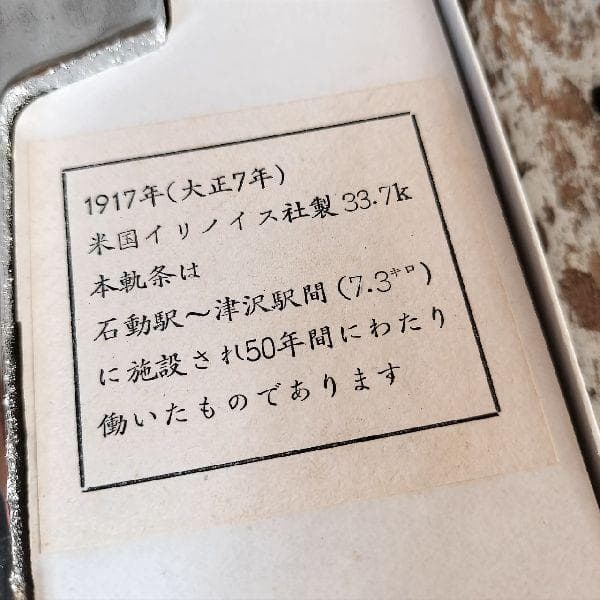 1917年(大正7年)
米国イリノイス社製 33.7k
本軌条は
石動駅〜津沢駅間 (7.3キロ)
に施設され50年間にわたり
働いたものであります